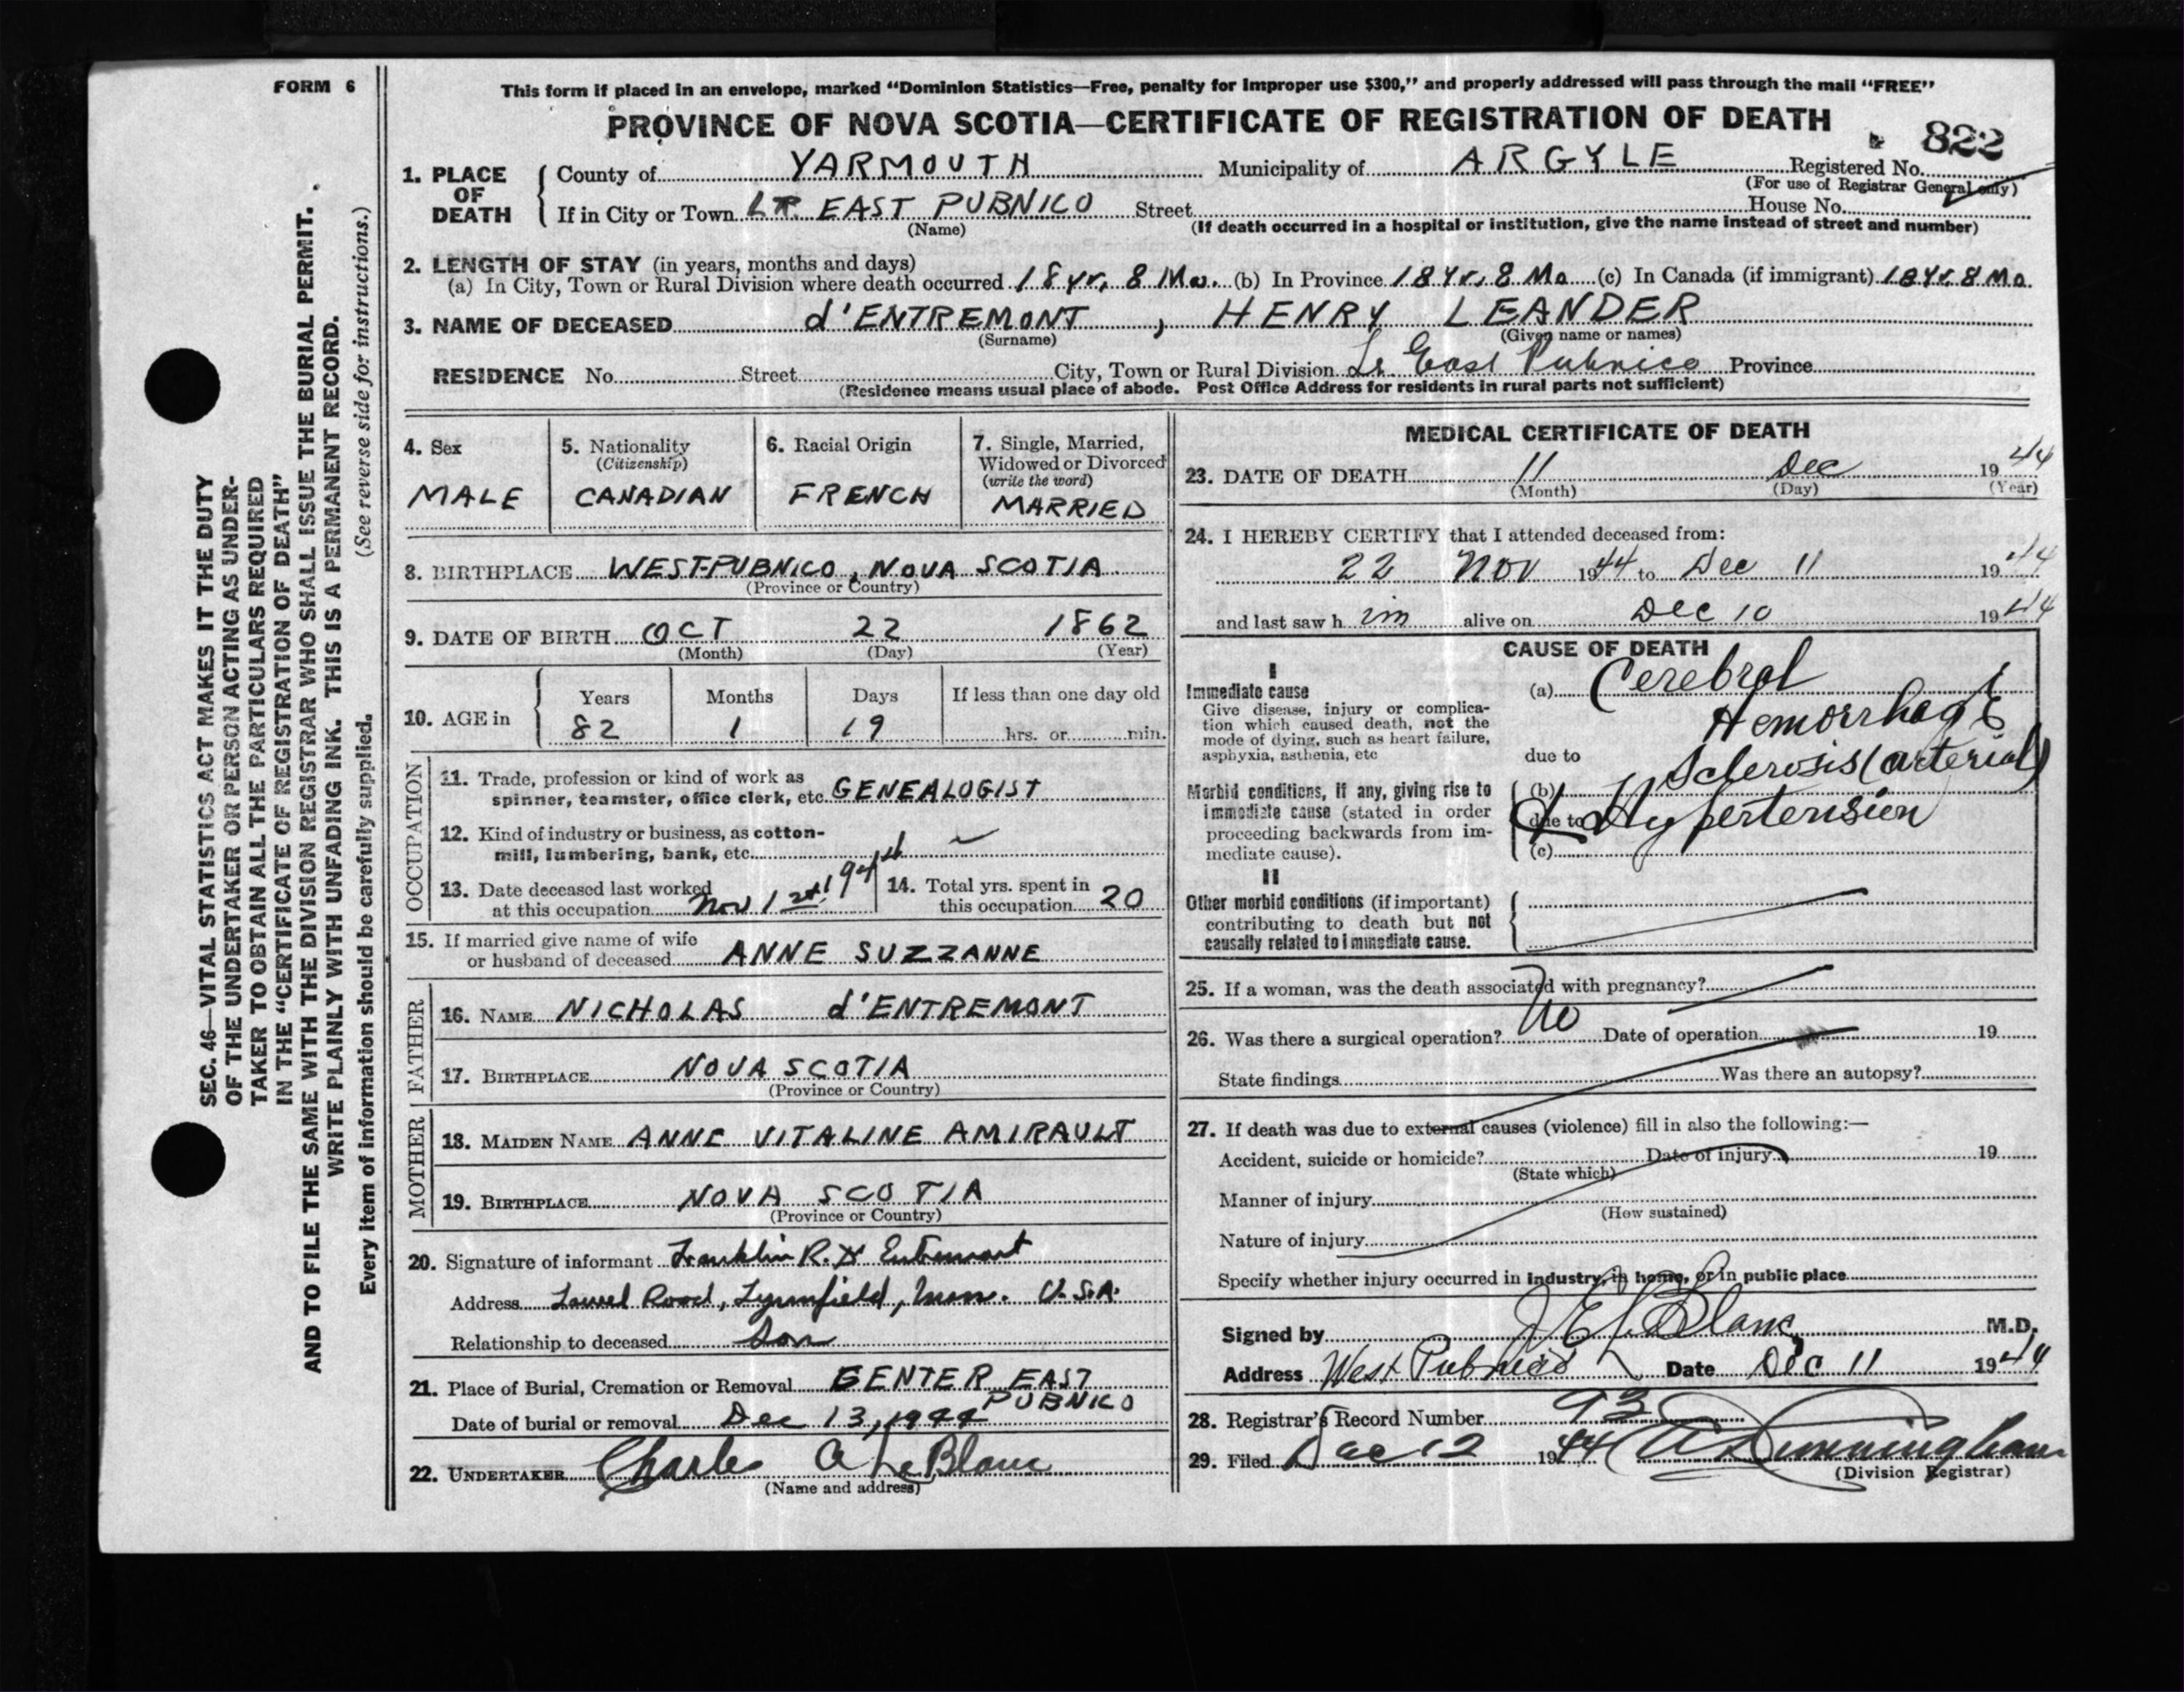 FORM 6
This form if placed in an envelope, marked "Dominion Statistics—Free, penalty for improper use $300," and properly addressed will pass through the mail "FREE"
PROVINCE OF NOVA SCOTIA—CERTIFICATE OF REGISTRATION OF DEATH
822
1. PLACE OF DEATH
County of YARMOUTH Municipality of ARGYLE Registered No.
(For use of Registrar General only)
If in City or Town LR. EAST PUBNICO Street House No.
(Name) (If death occurred in a hospital or institution, give the name instead of street and number)
2. LENGTH OF STAY (in years, months and days)
(a) In City, Town or Rural Division where death occurred 18 yr. 8 Mo. (b) In Province 18 Yr. 8 Mo (c) In Canada (if immigrant) 18 Yr. 8 Mo.
3. NAME OF DECEASED d'ENTREMONT, HENRY LEANDER
(Surname) (Given name or names)
RESIDENCE No. Street City, Town or Rural Division Lr. East Pubnico Province
(Residence means usual place of abode. Post Office Address for residents in rural parts not sufficient)
4. Sex
MALE
5. Nationality
(Citizenship)
CANADIAN
6. Racial Origin
FRENCH
7. Single, Married,
Widowed or Divorced
(write the word)
MARRIED
8. BIRTHPLACE WEST-PUBNICO, NOVA SCOTIA
(Province or Country)
9. DATE OF BIRTH OCT 22 1862
(Month) (Day) (Year)
10. AGE in
Years Months Days If less than one day old
82 1 19 hrs. or min.
OCCUPATION
11. Trade, profession or kind of work as
spinner, teamster, office clerk, etc. GENEALOGIST
12. Kind of industry or business, as cotton-
mill, lumbering, bank, etc. —
13. Date deceased last worked
at this occupation Nov 1st 1944
14. Total yrs. spent in
this occupation 20
15. If married give name of wife
or husband of deceased ANNE SUZZANNE
FATHER
16. NAME NICHOLAS d'ENTREMONT
17. BIRTHPLACE NOVA SCOTIA
(Province or Country)
MOTHER
18. MAIDEN NAME ANNE VITALINE AMIRAULT
19. BIRTHPLACE NOVA SCOTIA
(Province or Country)
20. Signature of informant Franklin R. d'Entremont
Address Lowel Road, Lynnfield, Mass. U.S.A.
Relationship to deceased Son
21. Place of Burial, Cremation or Removal CENTER EAST
PUBNICO
Date of burial or removal Dec 13, 1944
22. UNDERTAKER Charles A LeBlanc
(Name and address)
MEDICAL CERTIFICATE OF DEATH
23. DATE OF DEATH 11 Dec 1944
(Month) (Day) (Year)
24. I HEREBY CERTIFY that I attended deceased from:
22 Nov 1944 to Dec 11 1944
and last saw h im alive on Dec 10 1944
CAUSE OF DEATH
I
Immediate cause
Give disease, injury or complica-
tion which caused death, not the
mode of dying, such as heart failure,
asphyxia, asthenia, etc
(a) Cerebral
Hemorrhage
due to
Morbid conditions, if any, giving rise to
immediate cause (stated in order
proceeding backwards from im-
mediate cause).
(b) Sclerosis (arterial)
due to & Hypertension
(c)
II
Other morbid conditions (if important)
contributing to death but not
causally related to immediate cause.
25. If a woman, was the death associated with pregnancy?
26. Was there a surgical operation? No Date of operation 19
State findings Was there an autopsy?
27. If death was due to external causes (violence) fill in also the following:—
Accident, suicide or homicide? Date of injury 19
(State which)
Manner of injury
(How sustained)
Nature of injury
Specify whether injury occurred in industry, in home, or in public place
Signed by J E LeBlanc M.D.
Address West Pubnico Date Dec 11 1944
28. Registrar's Record Number 93
29. Filed Dec 12 1944 Cunningham
(Division Registrar)
SEC. 46—VITAL STATISTICS ACT MAKES IT THE DUTY
OF THE UNDERTAKER OR PERSON ACTING AS UNDER-
TAKER TO OBTAIN ALL THE PARTICULARS REQUIRED
IN THE "CERTIFICATE OF REGISTRATION OF DEATH"
AND TO FILE THE SAME WITH THE DIVISION REGISTRAR WHO SHALL ISSUE THE BURIAL PERMIT.
WRITE PLAINLY WITH UNFADING INK. THIS IS A PERMANENT RECORD.
(See reverse side for instructions.)
Every item of information should be carefully supplied.